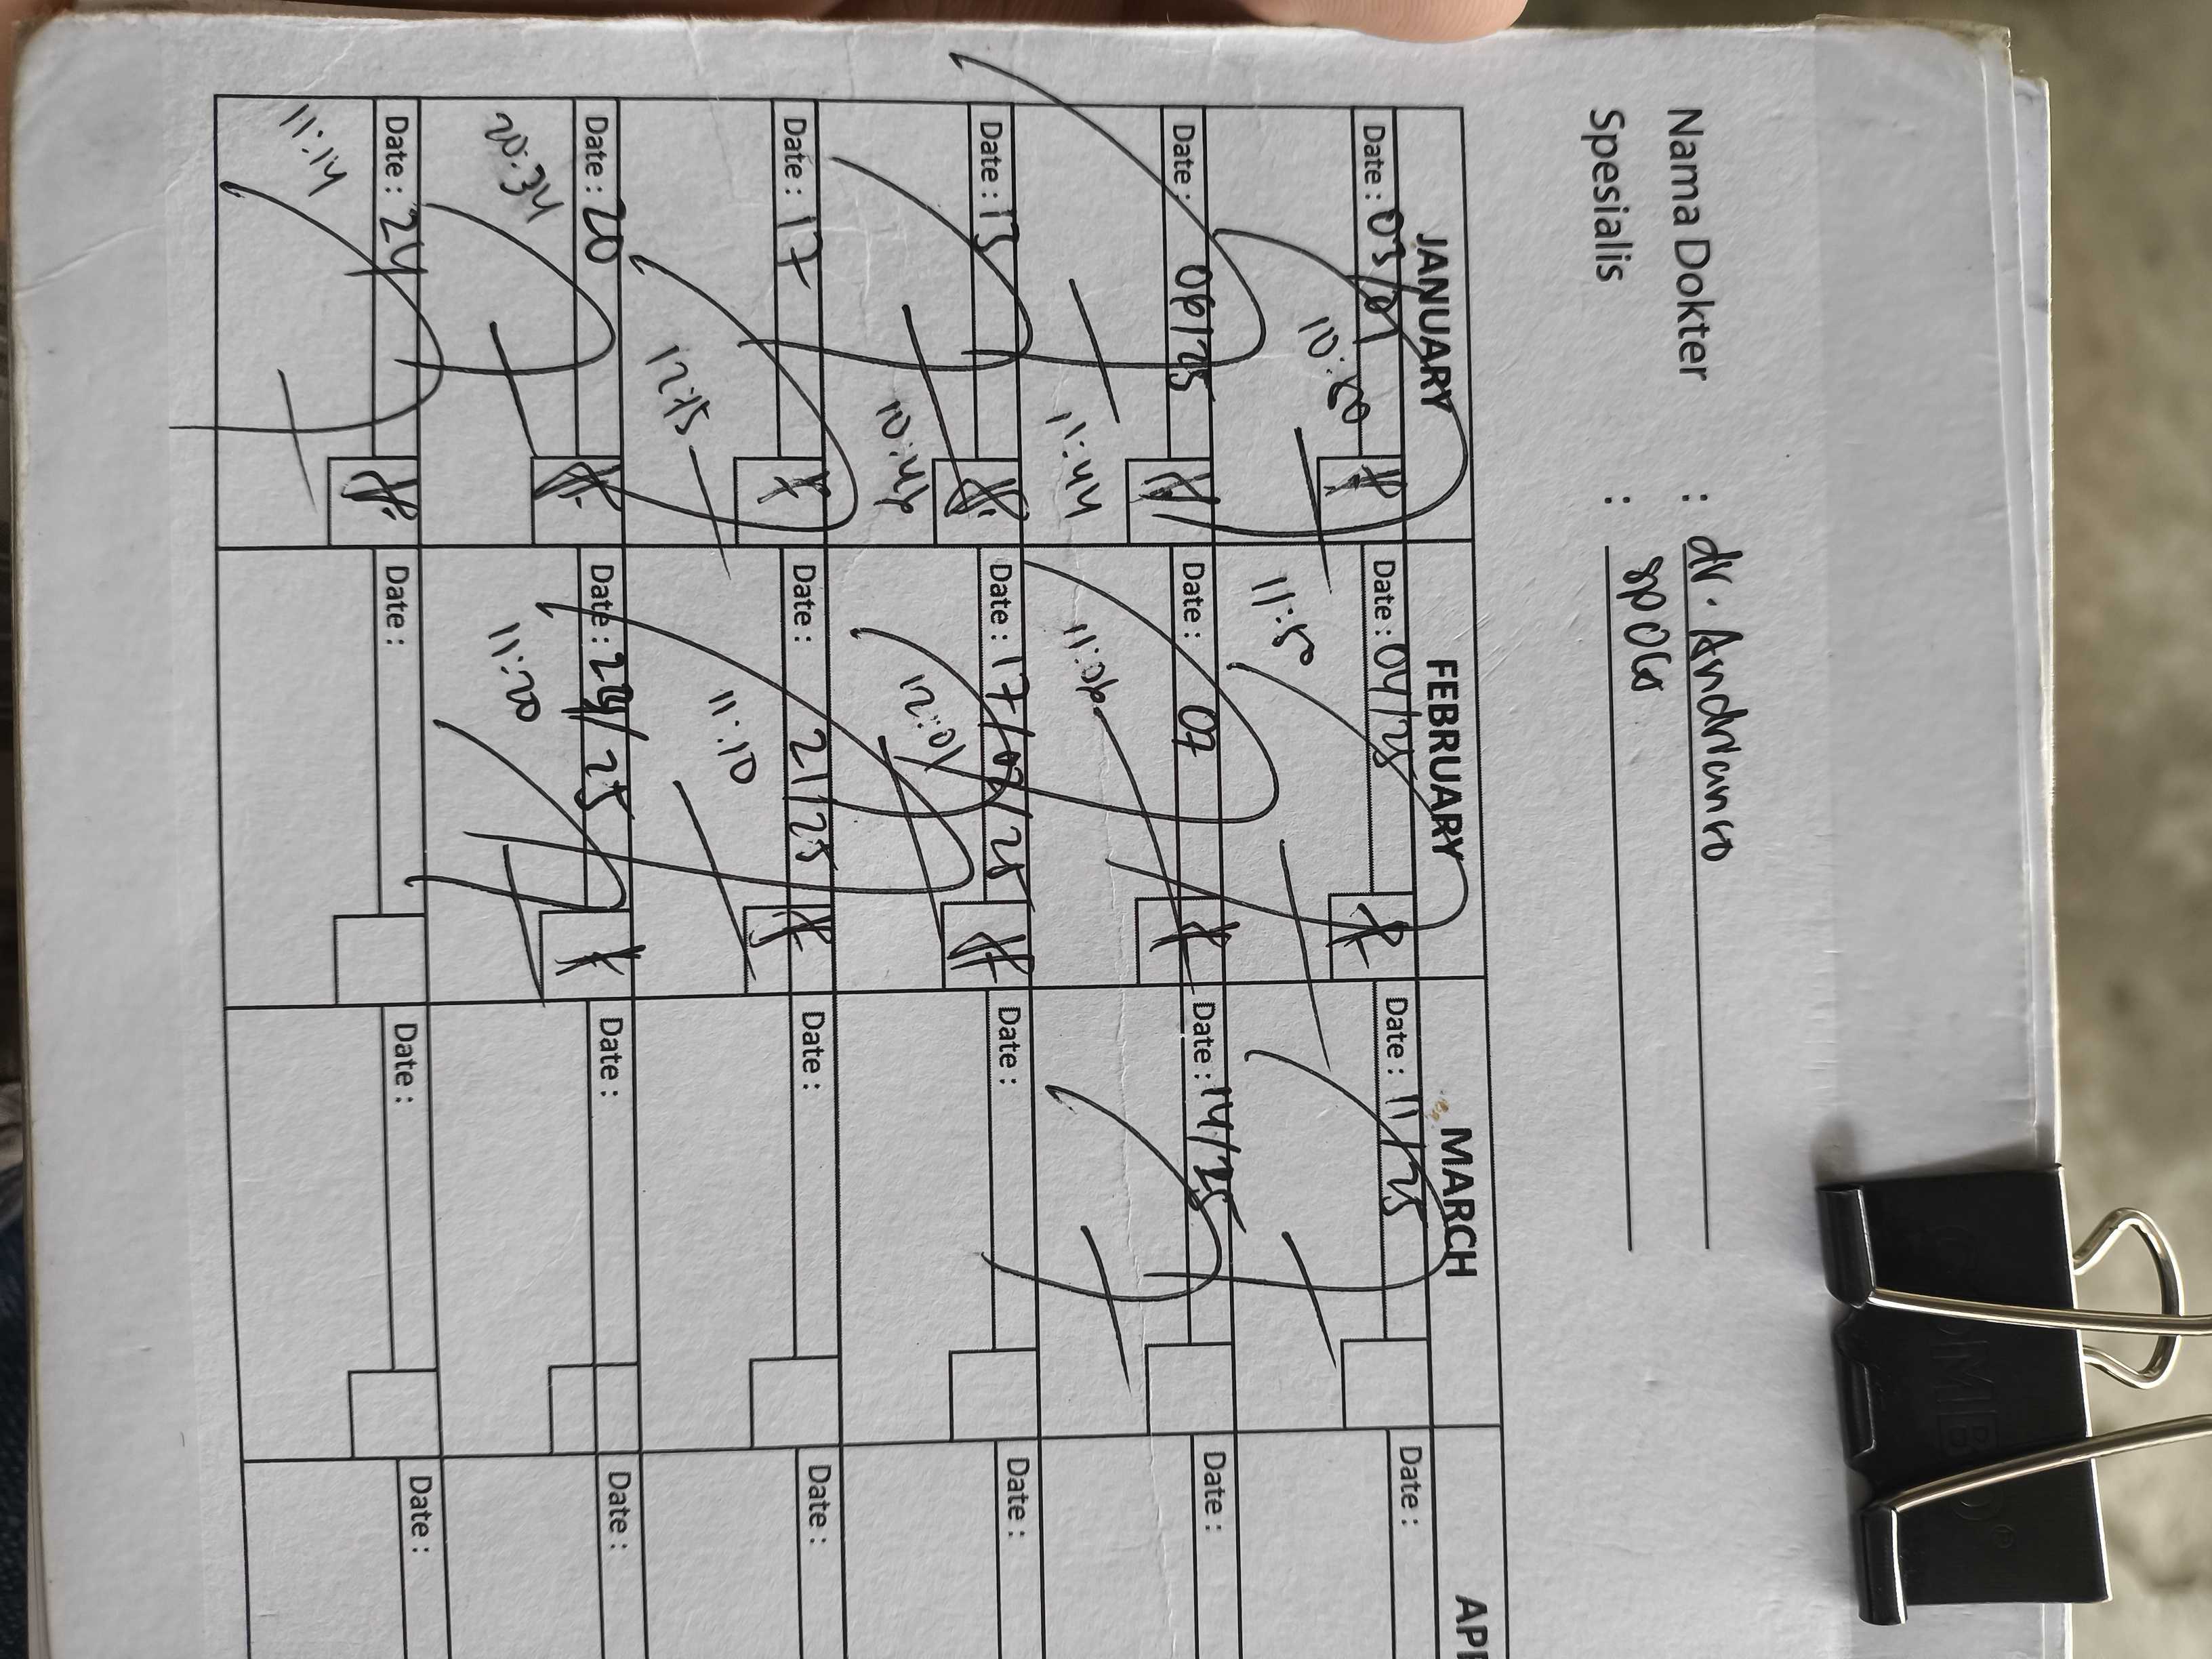 Nama Dokter : dr. Andrianro
Spesialis : SpOG
JANUARY FEBRUARY MARCH
Date : 03/01 Date : 04/25 Date : 11/25 Date :
10:50 11:50
Date : 06/25 Date : 07 Date : 14/25 Date :
11:44 11:06
Date : 13 Date : 17/02/25 Date : Date :
10:21
Date : 17 Date : 21/25 Date : Date :
12:15 11:10
Date : 20 Date : 24/25 Date : Date :
20:34 11:20
Date : 24 Date : Date : Date :
11:14